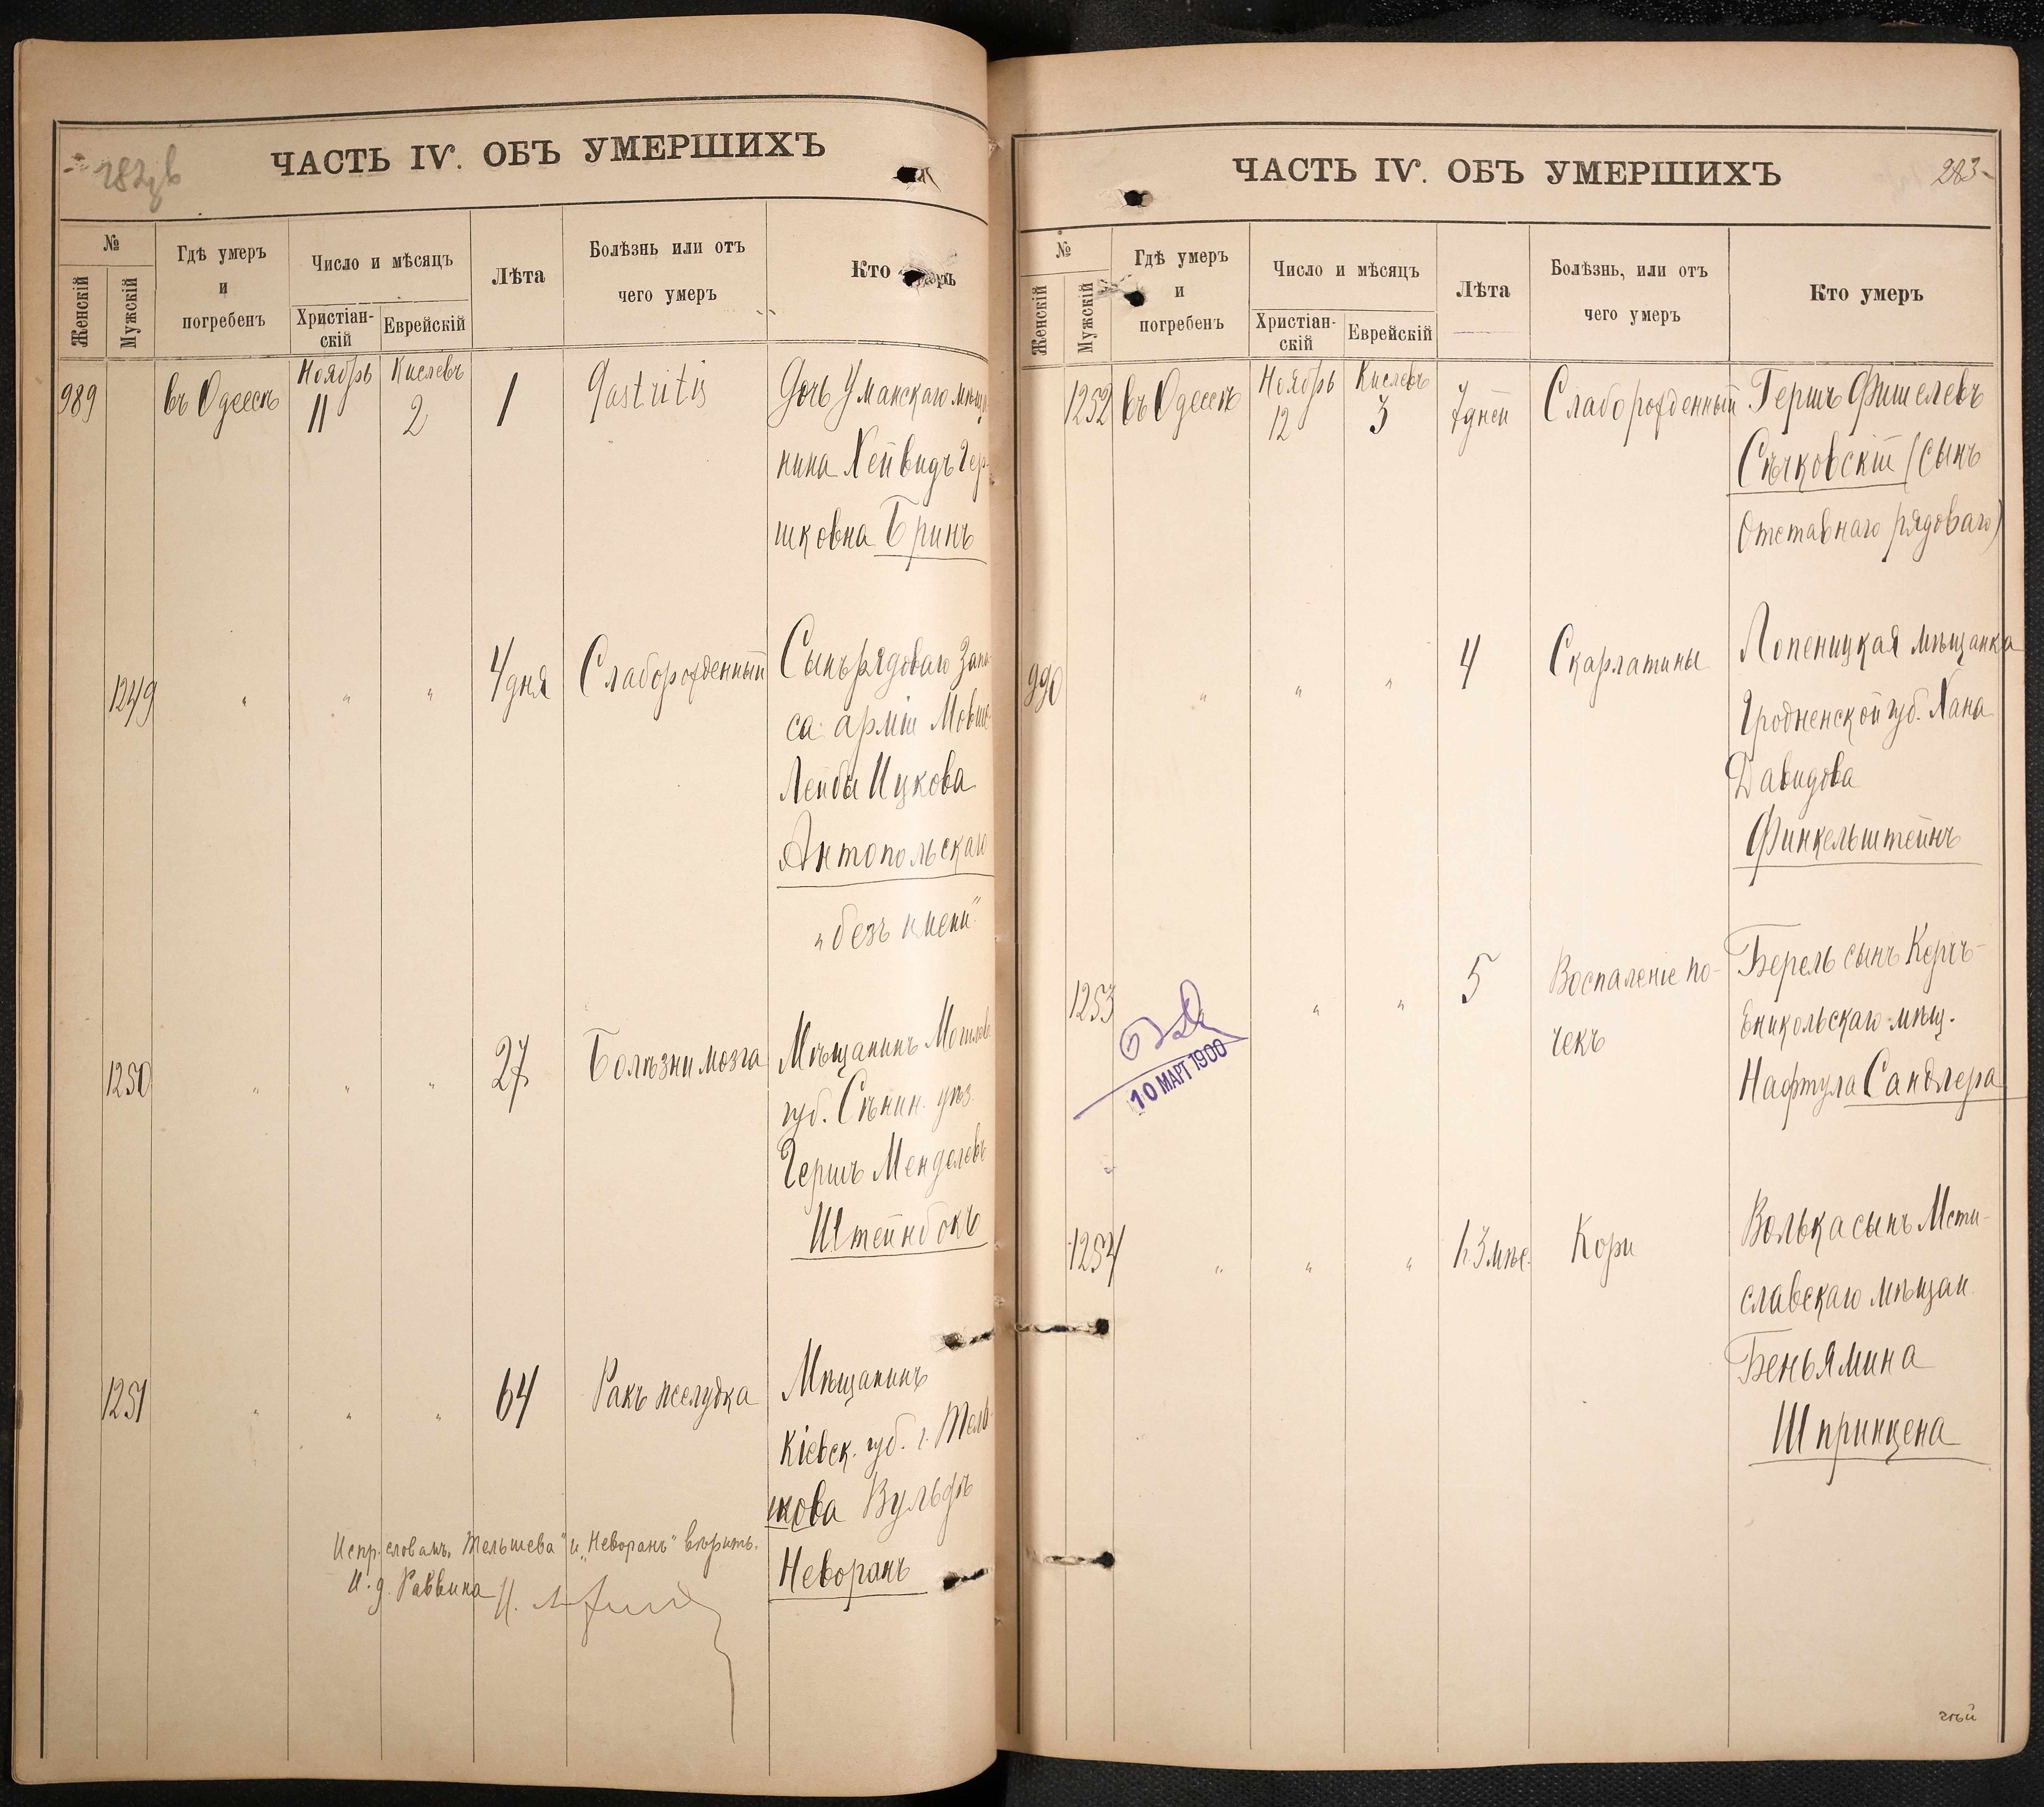 282об
ЧАСТЬ IV. ОБЪ УМЕРШИХЪ
№
Женскій
Мужскій
Гдѣ умеръ
и
погребенъ
Число и мѣсяцъ
Христіан-
скій
Еврейскій
Лѣта
Болѣзнь или отъ
чего умеръ
Кто
989
въ Одессѣ
Ноябрь
11
Кислевъ
2
1
Gastritis
Дочь Уманскаго мѣщ
нина Хейвидъ Гер-
шковна Бринъ
1249
"
"
"
4 дня
Слаборожденный
Сынъ рядоваго Запа-
са арміи Мовше
Лейбы Ицкова
Антопольскаго
„безъ имени"
1250
"
"
"
27
Болѣзни мозга
Мѣщанинъ Могилев
губ. Сѣнин. уѣз.
Гершъ Менделевъ
Штейнбокъ
1251
"
"
"
64
Ракъ желудка
Мѣщанинъ
Кіевск. губ. г. Тель
шова Вульфъ
Неворанъ
Испр. словамъ „Тельшева" и „Неворанъ" вѣрить.
И. д. Раввина
ЧАСТЬ IV. ОБЪ УМЕРШИХЪ
283
№
Женскій
Мужскій
Гдѣ умеръ
и
погребенъ
Число и мѣсяцъ
Христіан-
скій
Еврейскій
Лѣта
Болѣзнь, или отъ
чего умеръ
Кто умеръ
1252
въ Одессѣ
Ноябрь
12
Кислевъ
3
7 дней
Слаборожденный
Гершъ Фишелевъ
Сѣчковскій (сынъ
Отставнаго рядоваго)
990
"
"
"
4
Скарлатины
Лопеницкая мѣщанка
Гродненской губ. Хана
Давидова
Финкельштейнъ
1253
"
"
5
Воспаленіе по-
чекъ
Берель сынъ Керчъ-
Еникольскаго мѣщ.
Нафтула Сандлера
10 МАРТ 1900
1254
"
"
"
1. 3 мѣс.
Кори
Волька сынъ Мсти-
славскаго мѣщан
Беньямина
Шпринцена